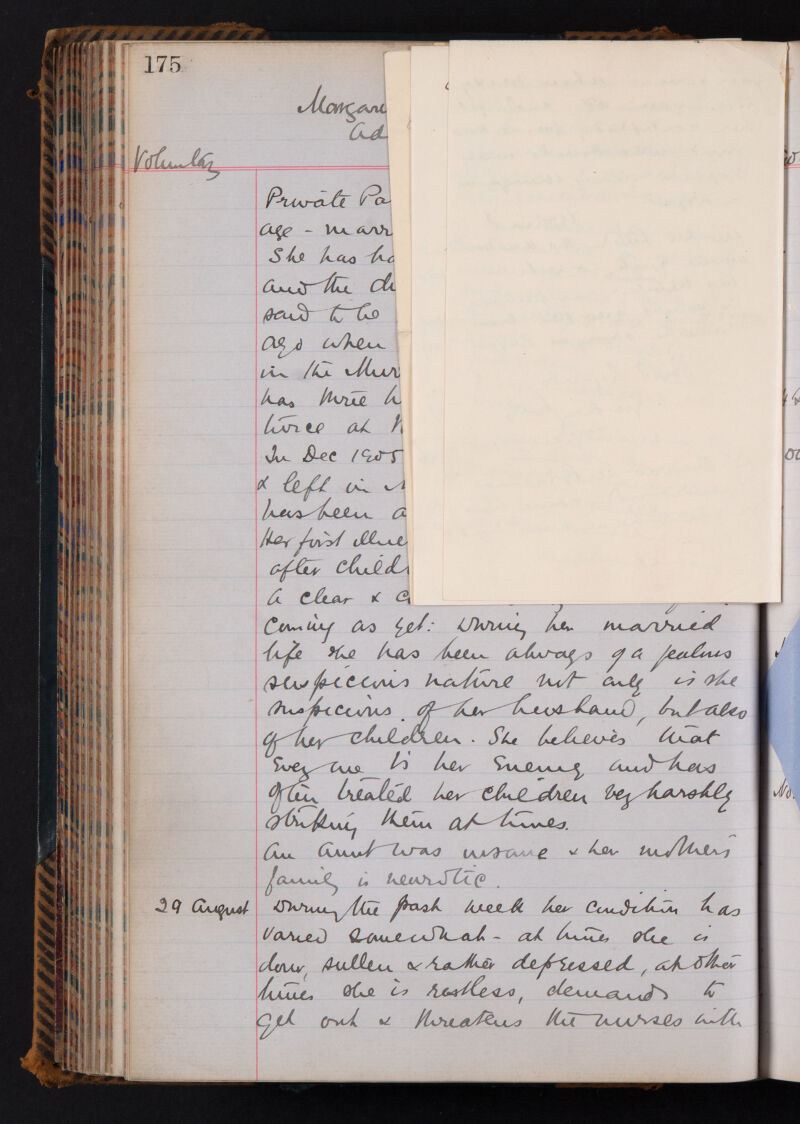 175
Margare
Ad
Voluntary
Private Pa
age - marr
She has ha
and the d
said to be
ago when
in the Mur
has three h
twice at
In Dec 1905
& left in
has been a
Her first illne
after childr
a clear & c
coming as yet: During her married
life she has been always of a jealous
suspicious nature not only is she
suspicious of her husband, but also
of her children. She believes that
every one is her enemy and has
often treated her children very harshly
striking them at times.
An aunt was insane & her mother's
family is neurotic.
29 August During the past week her condition has
varied somewhat - at times she is
dour, sullen & rather depressed, at other
times she is restless, demands to
get out & threatens the nurses with